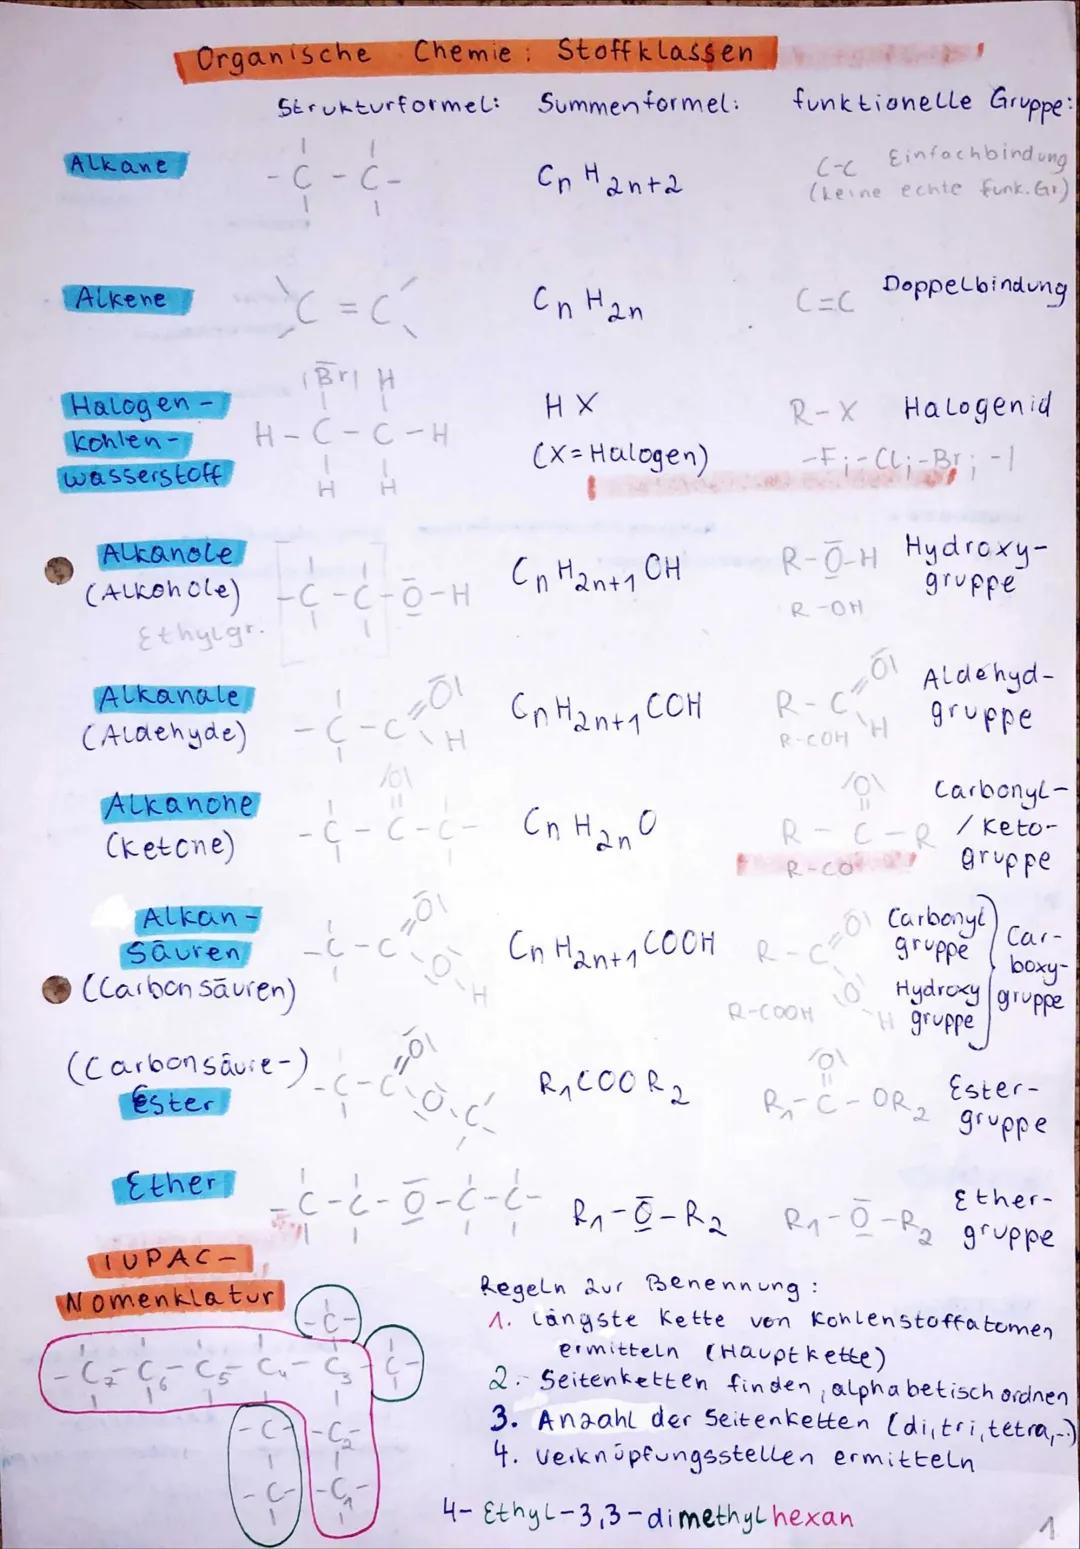 Organische Chemie: Stoffklassen
Strukturformel: Summenformel: funktionelle Gruppe:
Alkane
- C - C -
CnH2n+2
C-C Einfachbindung
(keine echte funk. Gr.)
Alkene
C = C
CnH2n
C=C Doppelbindung
Halogen-
kohlen-
wasserstoff
|Br| H
H - C - C - H
H H
HX
(X=Halogen)
R-X Halogenid
-F; -Cl; -Br; -I
Alkanole
(Alkohole)
Ethylgr.
-C-C-O-H
CnH2n+1OH
R-O-H Hydroxy-
gruppe
R-OH
Alkanale
(Aldehyde)
-C-C=O| H
CnH2n+1COH
R-C=O| H
R-COH
Aldehyd-
gruppe
Alkanone
(Ketone)
|O|
-C-C-C-
CnH2nO
|O|
R-C-R
R-CO
Carbonyl-
/Keto-
gruppe
Alkan-
säuren
(Carbonsäuren)
-C-C=O| O-H
CnH2n+1COOH
R-C=O| O-H
R-COOH
Carbonyl
gruppe
Hydroxy
gruppe
Car-
boxy-
gruppe
(Carbonsäure-)
Ester
-C-C=O| O-C
R1COOR2
|O|
R1-C-OR2
Ester-
gruppe
Ether
-C-C-O-C-C-
R1-O-R2
R1-O-R2
Ether-
gruppe
IUPAC-
Nomenklatur
-C-
-C7-C6-C5-C4-C3-C-
-C- -C2-
-C- -C1-
Regeln zur Benennung:
1. längste Kette von Kohlenstoffatomen
ermitteln (Hauptkette)
2. Seitenketten finden, alphabetisch ordnen
3. Anzahl der Seitenketten (di, tri, tetra,...)
4. Verknüpfungsstellen ermitteln
4-Ethyl-3,3-dimethylhexan
1